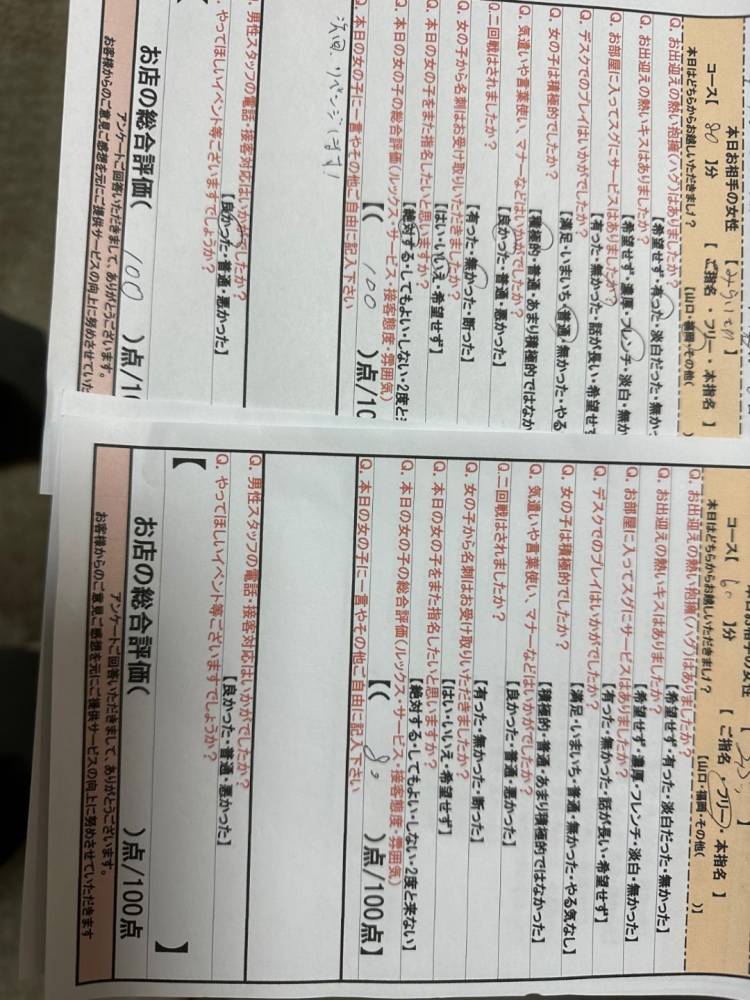 本日お相手の女性 【みらい
コース【 80 】分 【 ご指名 ・ フリー ・ 本指名 】
本日はどちらからお越しいただきまし? 【山口・福岡・その他( )
Q. お出迎えの熱い抱擁(ハグ)はありましたか?
【希望せず・有った・淡白だった・無か
Q. お出迎えの熱いキスはありましたか?
【希望せず・濃厚・フレンチ・淡白・無か
Q. お部屋に入ってスグにサービスはありましたか?
【有った・無かった・話が長い・希望せず
Q. デスクでのプレイはいかがでしたか?
【満足・いまいち・普通・無かった・やる
Q. 女の子は積極的でしたか?
【積極的・普通・あまり積極的ではなか
Q. 気遣いや言葉使い、マナーなどはいかがでしたか?
【良かった・普通・悪かった】
Q. 二回戦はされましたか?
【有った・無かった・断った】
Q. 女の子から名刺はお受け取りいただきましたか?
【はい・いいえ・希望せず】
Q. 本日の女の子をまた指名したいと思いますか?
【絶対する・してもよい・しない・2度と
Q. 本日の女の子の総合評価(ルックス・サービス・接客態度・雰囲気)
【( 100 )点/10
Q. 本日の女の子に一言やその他ご自由に記入下さい
次回、リベンジします!
Q. 男性スタッフの電話・接客対応はいかがでしたか?
【良かった・普通・悪かった】
Q. やってほしいイベント等ございますでしょうか?
【
お店の総合評価( 100 )点/10
アンケートご回答いただきまして、ありがとうございます。
お客様からのご意見ご感想を元にご提供サービスの向上に努めさせていた
お手の女性 【 】
コース【 60 】分 【 ご指名 ・ フリー ・ 本指名 】
本日はどちらからお越しいただきまし? 【山口・福岡・その他( )】
Q. お出迎えの熱い抱擁(ハグ)はありましたか?
【希望せず・有った・淡白だった・無かった】
Q. お出迎えの熱いキスはありましたか?
【希望せず・濃厚・フレンチ・淡白・無かった】
Q. お部屋に入ってスグにサービスはありましたか?
【有った・無かった・話が長い・希望せず】
Q. デスクでのプレイはいかがでしたか?
【満足・いまいち・普通・無かった・やる気なし】
Q. 女の子は積極的でしたか?
【積極的・普通・あまり積極的ではなかった】
Q. 気遣いや言葉使い、マナーなどはいかがでしたか?
【良かった・普通・悪かった】
Q. 二回戦はされましたか?
【有った・無かった・断った】
Q. 女の子から名刺はお受け取りいただきましたか?
【はい・いいえ・希望せず】
Q. 本日の女の子をまた指名したいと思いますか?
【絶対する・してもよい・しない・2度と来ない】
Q. 本日の女の子の総合評価(ルックス・サービス・接客態度・雰囲気)
【( 80 )点/100点】
Q. 本日の女の子に一言やその他ご自由に記入下さい
Q. 男性スタッフの電話・接客対応はいかがでしたか?
【良かった・普通・悪かった】
Q. やってほしいイベント等ございますでしょうか?
【 】
お店の総合評価( )点/100点
アンケートご回答いただきまして、ありがとうございます。
お客様からのご意見ご感想を元にご提供サービスの向上に努めさせていただきます